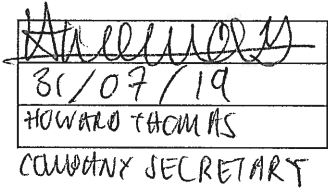 31/07/19
HOWARD THOMAS
COMPANY SECRETARY